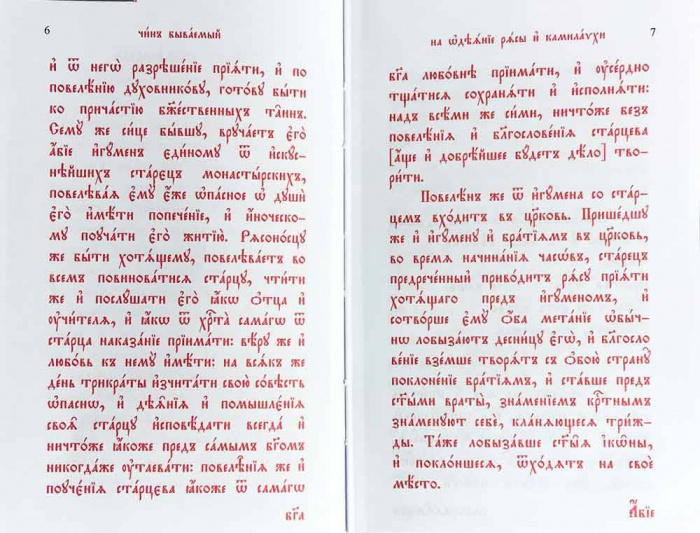 6
чи́нъ быва́емый
и҆ ѿ негѡ̀ разрѣше́нїе прїѧ́ти, и҆ по
повелѣ́нїю дꙋхо́вникову, гото́вꙋ бы́ти
ко прича́стїю бж҃е́ственныхъ та́инъ.
Семꙋ́ же си́це бы́вшꙋ, врꙋча́етъ є҆го̀
а҆́бїе и҆гꙋ́менъ є҆ди́номꙋ ѿ и҆скꙋс-
нѣ́йшихъ ста́рєцъ монасты́рскихъ,
повелѣва́ѧ є҆мꙋ̀ є҆́же ѡ҆па́сное ѡ҆ дꙋшѝ
є҆гѡ̀ и҆мѣ́ти попече́нїе, и҆ и҆́ноческо-
мꙋ поꙋча́ти є҆го̀ житїю̀. Рѧсоно́сцꙋ
же бы́ти хотѧ́щемꙋ, повелѣва́етъ во
всемъ повинова́тисѧ ста́рцꙋ, чти́ти
же и҆ послꙋ́шати є҆гѡ̀ ꙗ҆́кѡ ѻ҆тца̀ и҆
ᲂу҆чи́телѧ, и҆ ꙗ҆́кѡ ѿ хр҇та̀ самагѡ̀ ѿ
ста́рца наказа́нїе прїима́ти: вѣ́рꙋ же и҆
любо́вь къ немꙋ̀ и҆мѣ́ти: на всѧ́къ же
де́нь трикра́ты и҆зчита́ти свою̀ со́вѣсть
ѡ҆па́снѡ, и҆ дѣѧ̑нїѧ и҆ помышлє́нїѧ
своѧ̑ ста́рцꙋ и҆сповѣ́дати всегда̀ и҆
ничто́же ꙗ҆́коже предъ самы́мъ бг҃омъ
никогда́же ᲂу҆таева́ти: повелѣ̑нїѧ же и҆
поꙋчє́нїѧ ста́рцєва ꙗ҆́коже ѿ самагѡ̀
бг҃а
на ѡ҆дѣѧ́нїе рѧ́сы и҆ камила́ѵхи
7
бг҃а любо́внѣ прїима́ти, и҆ ᲂу҆се́рднѡ
тща́тисѧ сохранѧ́ти и҆ и҆сполнѧ́ти:
надъ всѣ́ми же си́ми, ничто́же безъ
повелѣ́нїѧ и҆ бл҃гослове́нїѧ ста́рцева
[а҆́ще и҆ добрѣ́йшее бꙋ́детъ дѣ́ло] тво-
ри́ти.
Повелѣ́нъ же ѿ и҆гꙋ́мена со ста́р-
цемъ вхо́дитъ въ цр҃ковь. Прише́дшꙋ
же и҆ и҆гꙋ́менꙋ и҆ бра́тїѧмъ въ цр҃ковь,
во вре́мѧ начина́нїѧ часѡ́въ, ста́рецъ
предрече́нный приво́дитъ рѧ́сꙋ прїѧ́ти
хотѧ́щаго предъ и҆гꙋ́меномъ, и҆
сотво́рше є҆мꙋ̀ ѻ҆́ба мета̑нїе ѡ҆бы́ч-
нѡ лобыза́ютъ десни́цꙋ є҆гѡ̀, и҆ бл҃госло
ве́нїе взе́мше творѧ́тъ съ ѻ҆бою̀ странꙋ̀
поклоне́нїе бра́тїѧмъ, и҆ ста́вше предъ
ст҃ы́ми враты̀, зна́менїемъ кр҇тнымъ
зна́менꙋютъ себѐ, кла́нѧющесѧ три́ж-
ды. Та́же лобыза́вше ст҃ы̑ѧ і҆кѡ́ны,
и҆ поклони́вшесѧ, ѿхо́дѧтъ на своѐ
мѣ́сто.
А҆́бїе